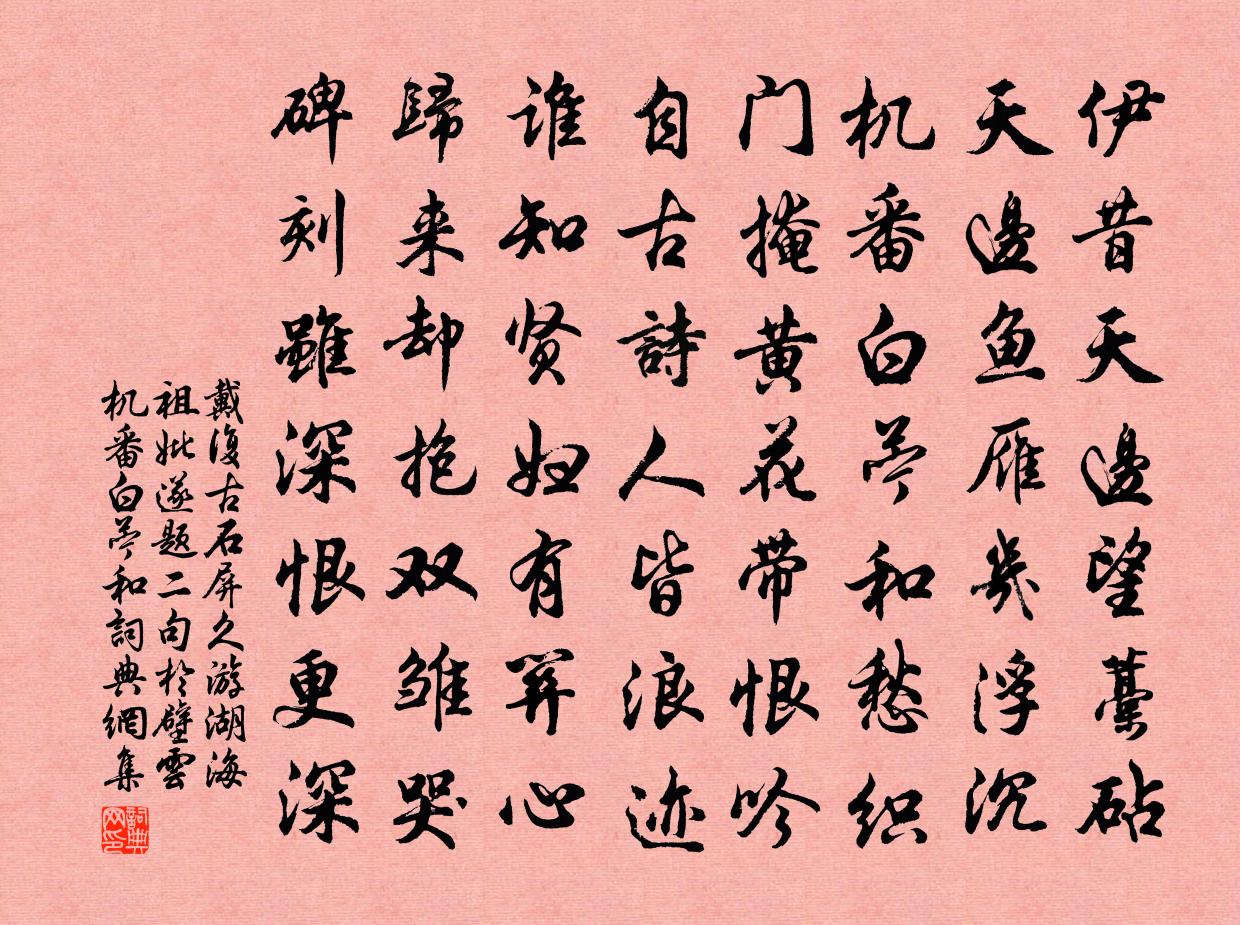 伊昔天邊望藁砧
天邊魚雁幾浮沉
机番白苧和愁织
门掩黄花带恨吟
自古詩人皆浪迹
谁知贤妇有关心
歸来却抱双雏哭
碑刻雖深恨更深
戴復古石屏久游湖海
祖妣遂题二句於壁雲
机番白苧和詞典網集
詞典
网印